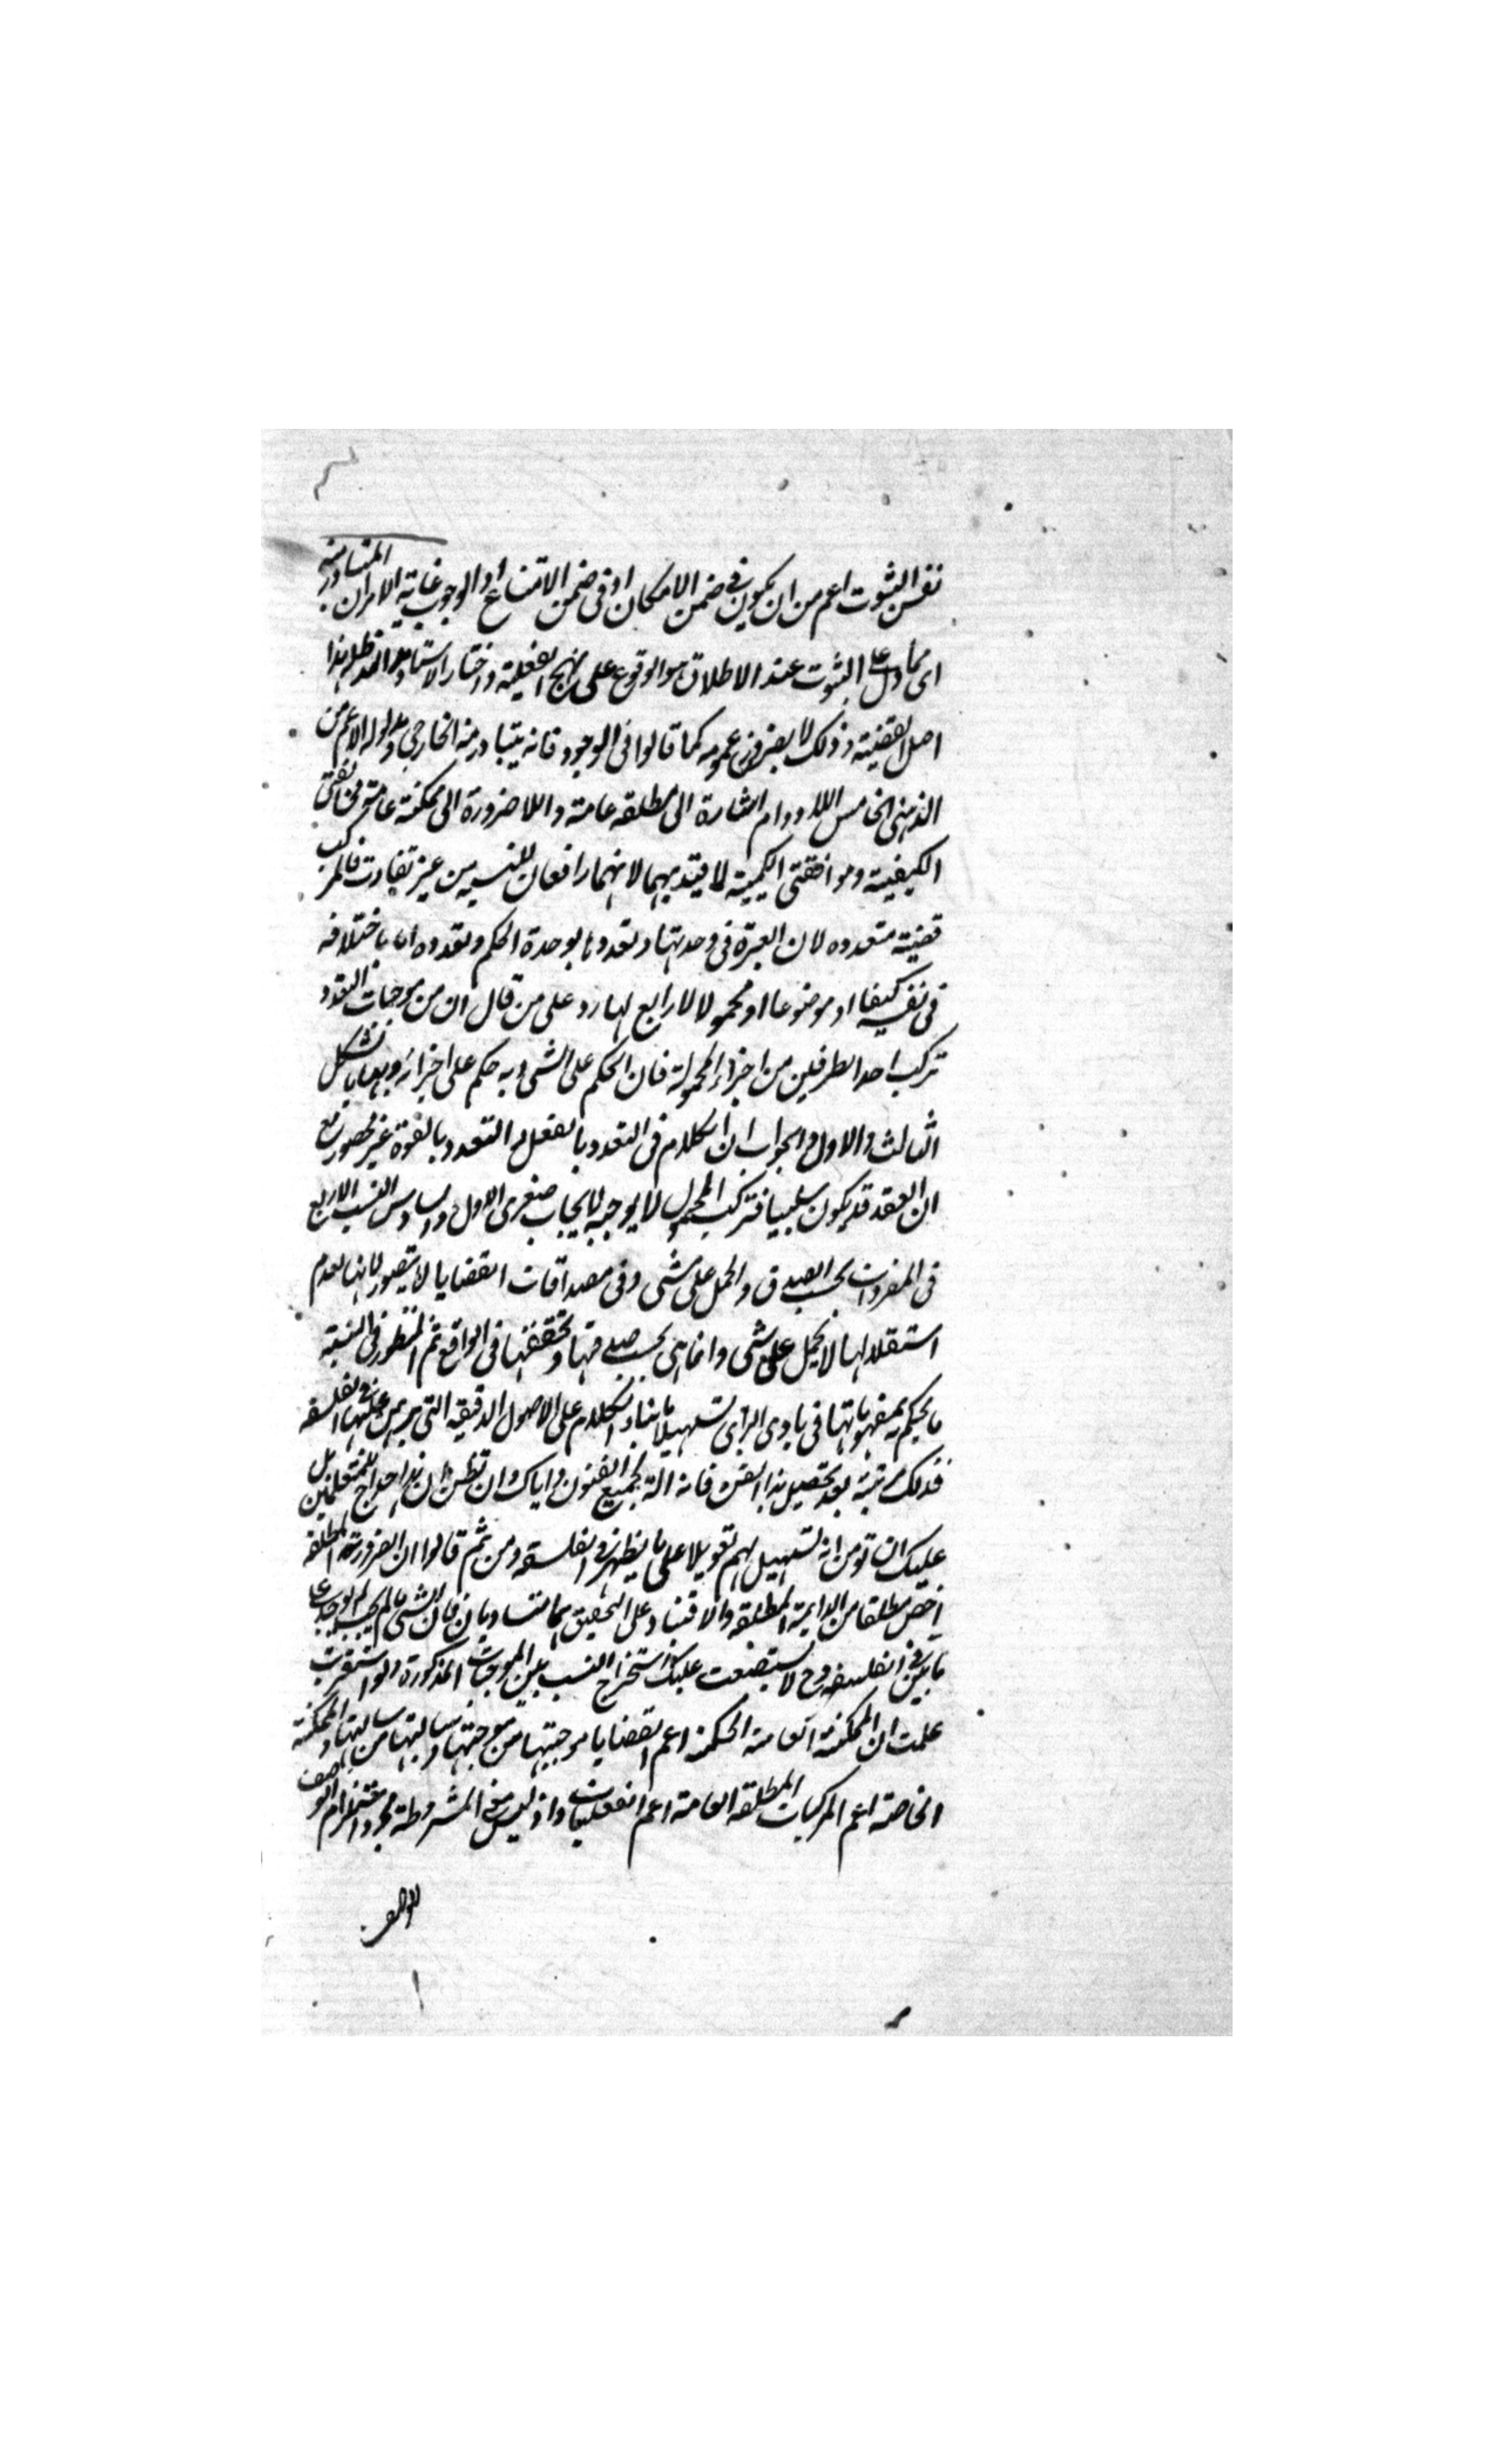 نفس الثبوت اعم من ان يكون فى ضمن الامكان او فى ضمن الامتناع او الوجوب غاية الامر ان المتبادر منه
اى مما دل على الثبوت عند الاطلاق هو الوقوع على نهج الفعلية واختار الاستاد مد ظله هذا
اصل القضية وذلك لا يضر فى عمومه كما قالوا فى الوجود فانه يتبادر منه الخارجى ومدلوله الاعم من
الذهنى الخامس اللا دوام اشارة الى مطلقة عامة واللا ضرورة الى ممكنة عامة مخالفتى
الكيفية وموافقتى الكمية لما قيد بهما لانهما رافعان للنسبة من غير تفاوت فالمركب
قضية متعدده لان العبرة فى وحدتها وتعددها بوحدة الحكم وتعدده اما باختلافه
فى نفسه كيفا او موضوعا او محمولا لا رابع لها رد على من قال ان من موجبات التعدد
تركب احد الطرفين من اجزاء المحمولة فان الحكم على الشى وبه حكم على اجزائه وبها بالشكل
الثالث والاول والجواب ان الكلام فى التعدد بالفعل والتعدد بالقوة غير محصور مع
ان العقد قد يكون سلبيا فتركب المحمول لا يوجبه لايجاب صغرى الاول والسادس النسب الاربع
فى المفردات بحسب الصدق والحمل على شى وفى مصداقات القضايا لا يتصور لانها لعدم
استقلالها لا تحمل على شى وانما هى بحسب صدقها وتحققها فى الواقع ثم المنظور فى النسبة
ما يحكم به مفهوماتها فى بادى الراى تسهيلا ما بناء الكلام على الاصول الدقيقة التى برهن عليها فى الفلسفه
فذلك مرتبة بعد تحصيل هذا الفن فانه الة لجميع الفنون واياك وان تظن ان هذا احراج للمتعلمين بل
عليك ان تومن انه تسهيل لهم تعويلا على ما يظهر فى الفلسفة ومن ثم قالوا ان الضرورية المطلقة
اخص مطلقا من الدايمة المطلقة والاقتناد على التحقيق هما متساويان فان الشى ما لم يجب لم يوجد على
ما بين فى الفلسفة وح لا يستصعب عليك استخراج النسب بين الموجهات المذكورة ولو استقريت
علمت ان الممكنة العامة الحكمة اعم القضايا موجبتها من موجبتها وسالبتها من سالبتها والممكنة
الخاصة اعم المركبات المطلقة العامة اعم الفعليات واذ ليس معنى المشروطة مجرد استلزام الوصف
للوصف